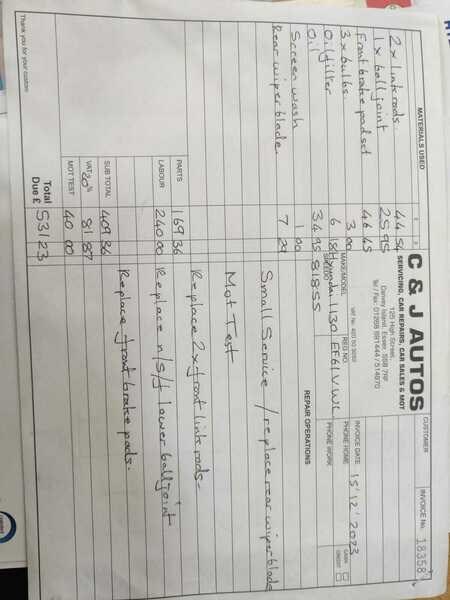 CUSTOMER
INVOICE No. 18358
C & J AUTOS
SERVICING, CAR REPAIRS, CAR SALES & MOT
125 High Street,
Canvey Island, Essex, SS8 7RF
Tel / Fax: 01268 691444 / 514970
INVOICE DATE 15/12/2023
CASH
CREDIT
PHONE HOME
PHONE WORK
MAKE/MODEL Hyundai i30
REG NO. EF61VWC
SPEEDO 81855
MATERIALS USED £
2 x link rods. 44 54
1 x ball joint 25 95
Front brake pad set 46 45
3 x bulbs. 3 00
Oil filter 6 18
Oil 34 95
Screen wash 1 00
Rear wiper blade. 7 29
PARTS 169 36
LABOUR 240 00
SUB TOTAL 409 36
VAT 20% 81 87
MOT TEST 40 00
Total Due £ 531 23
REPAIR OPERATIONS
Small Service / replace rear wiper blade
Mot Test
Replace 2x front link rods-
Replace n/s/f lower ball joint
Replace front brake pads.
Thank you for your custom